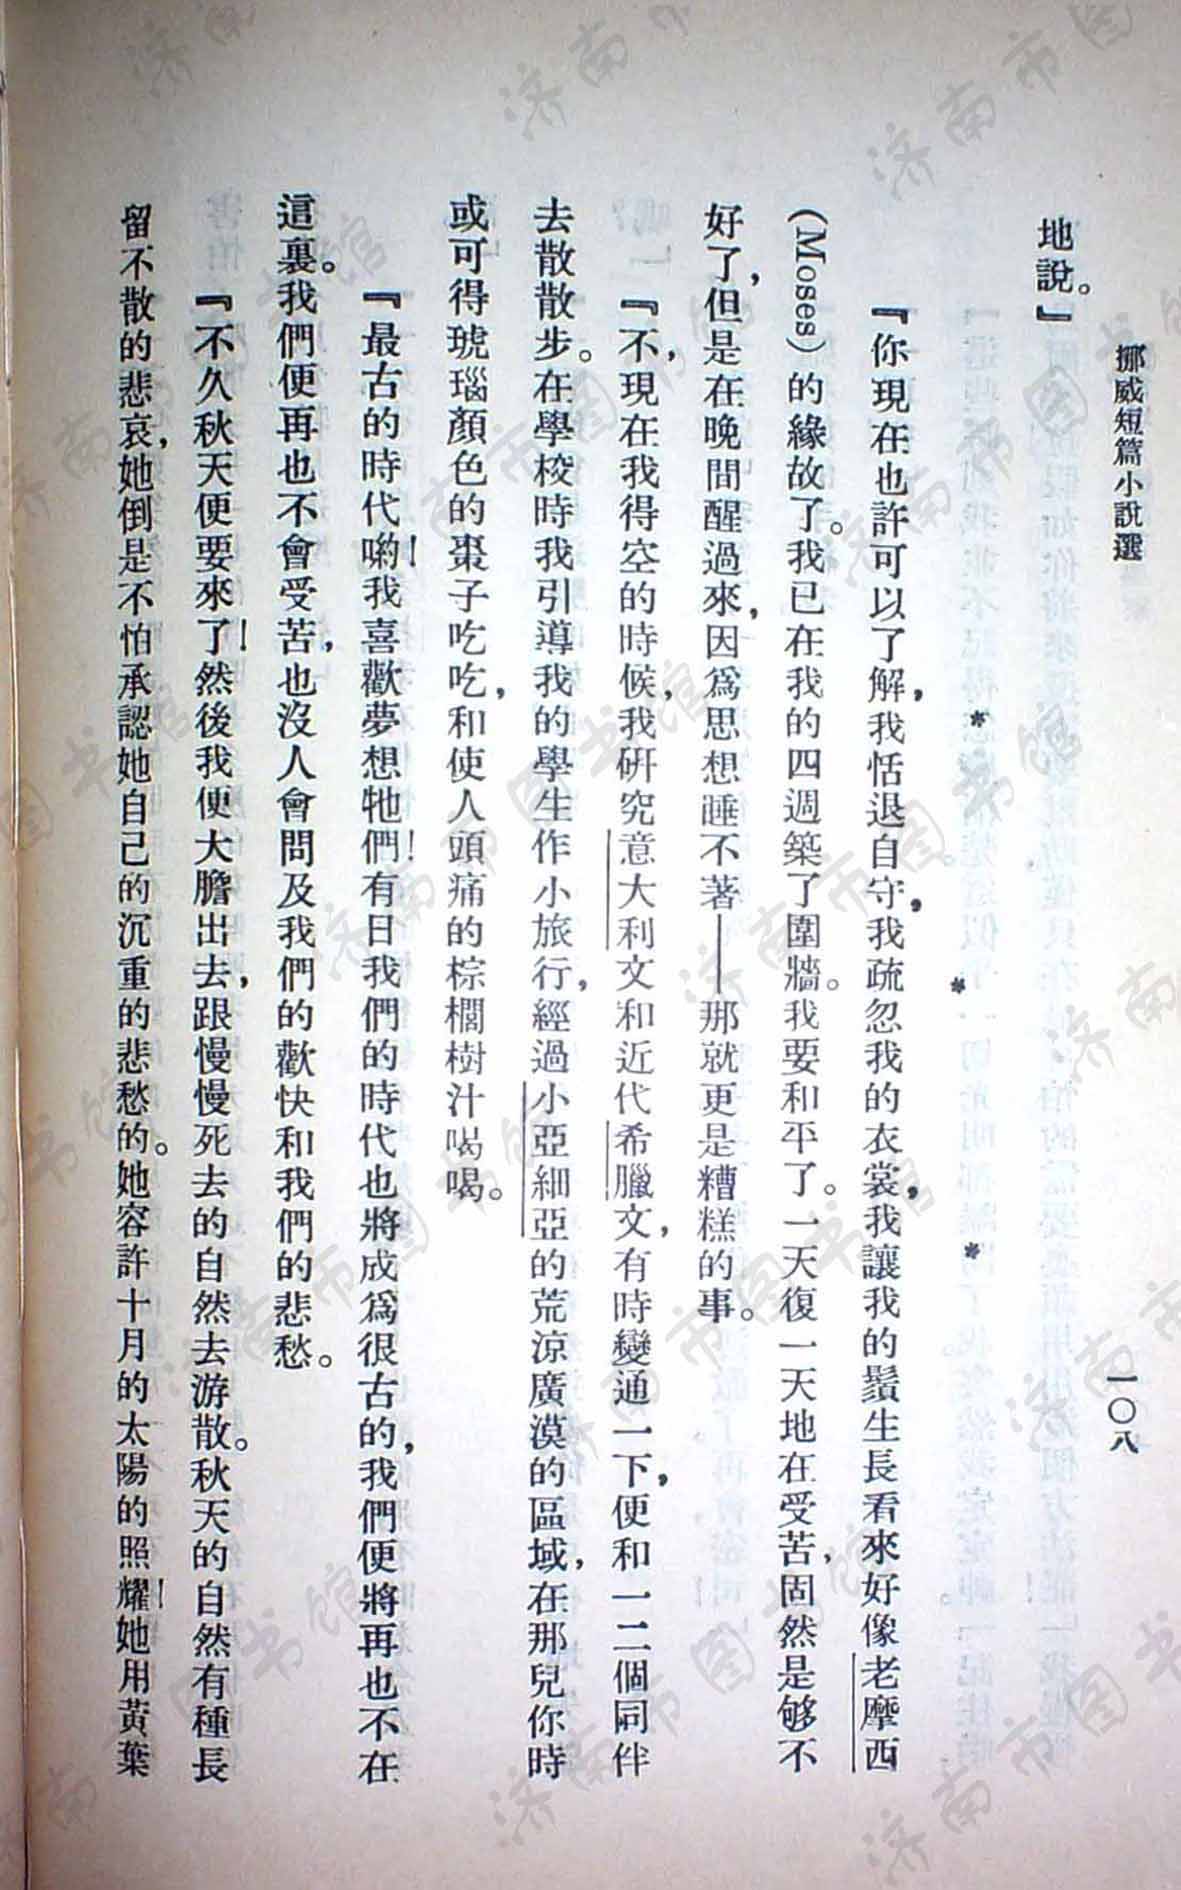 挪威短篇小說選
一〇八
地說。』
* * *
『你現在也許可以了解，我恬退自守，我疏忽我的衣裳，我讓我的鬚生長看來好像老摩西
(Moses)的緣故了。我已在我的四週築了圍牆。我要和平了。一天復一天地在受苦，固然是够不
好了，但是在晚間醒過來，因爲思想睡不著——那就更是糟糕的事。
『不，現在我得空的時候，我研究意大利文和近代希臘文，有時變通一下，便和一二個同伴
去散散步。在學校時我引導我的學生作小旅行，經過小亞細亞的荒涼廣漠的區域，在那兒你時
或可得琥瑙顏色的棗子吃吃，和使人頭痛的棕櫚樹汁喝喝。
『最古的時代喲！我喜歡夢想牠們！有日我們的時代也將成爲很古的，我們便將再也不在
這裏。我們便再也不會受苦，也沒人會問及我們的歡快和我們的悲愁。
『不久秋天便要來了！然後我便大膽出去，跟慢慢死去的自然去游散。秋天的自然有種長
留不散的悲哀，她倒是不怕承認她自己的沉重的悲愁的。她容許十月的太陽的照耀！她用黃葉
济南市图书馆